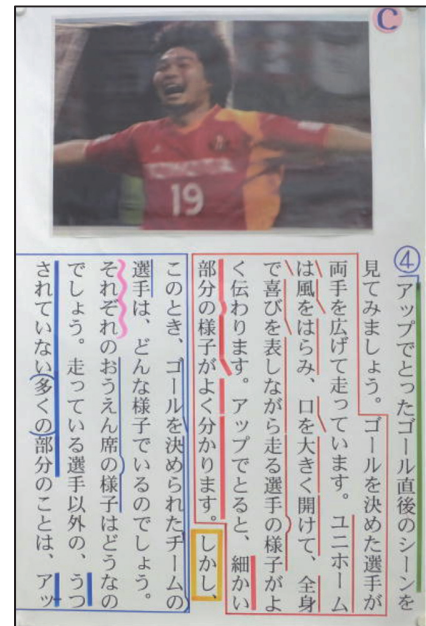 C
TOYOTA
19
④アップでとったゴール直後のシーンを
見てみましょう。ゴールを決めた選手が
両手を広げて走っています。ユニホーム
は風をはらみ、口を大きく開けて、全身
で喜びを表しながら走る選手の様子がよ
く伝わります。アップでとると、細かい
部分の様子がよく分かります。しかし、
このとき、ゴールを決められたチームの
選手は、どんな様子でいるのでしょう。
それぞれのおうえん席の様子はどうなの
でしょう。走っている選手以外の、うつ
されていない多くの部分のことは、アッ